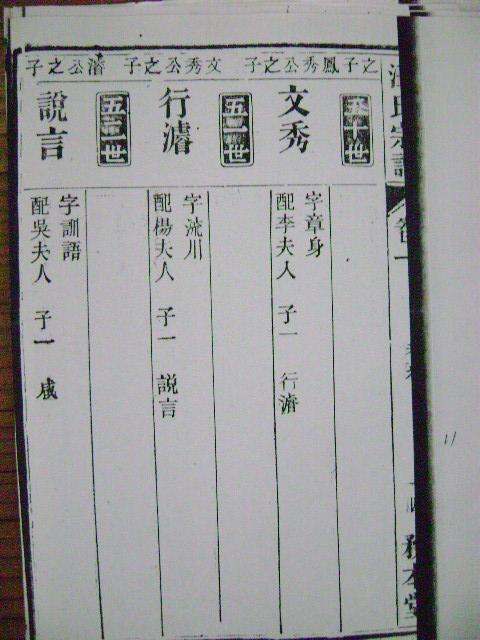 氏宗譜
卷一
本堂
之子
鳳秀公之子
文秀公之子
濬公之子
五十世
文秀
字章身
配李夫人 子一 行濬
五一世
行濬
字流川
配楊夫人 子一 説言
五二世
說言
字訓語
配吳夫人 子一 咸